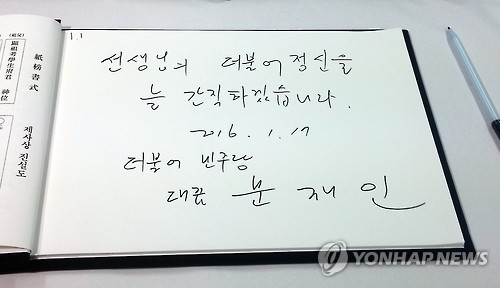 紙榜書式
顯祖考學生府君 神位
제사상 진설도
1.1
선생님의 더불어정신을
늘 간직하겠습니다.
2016. 1. 17
더불어 민주당
대표 문 재 인
YONHAP NEWS